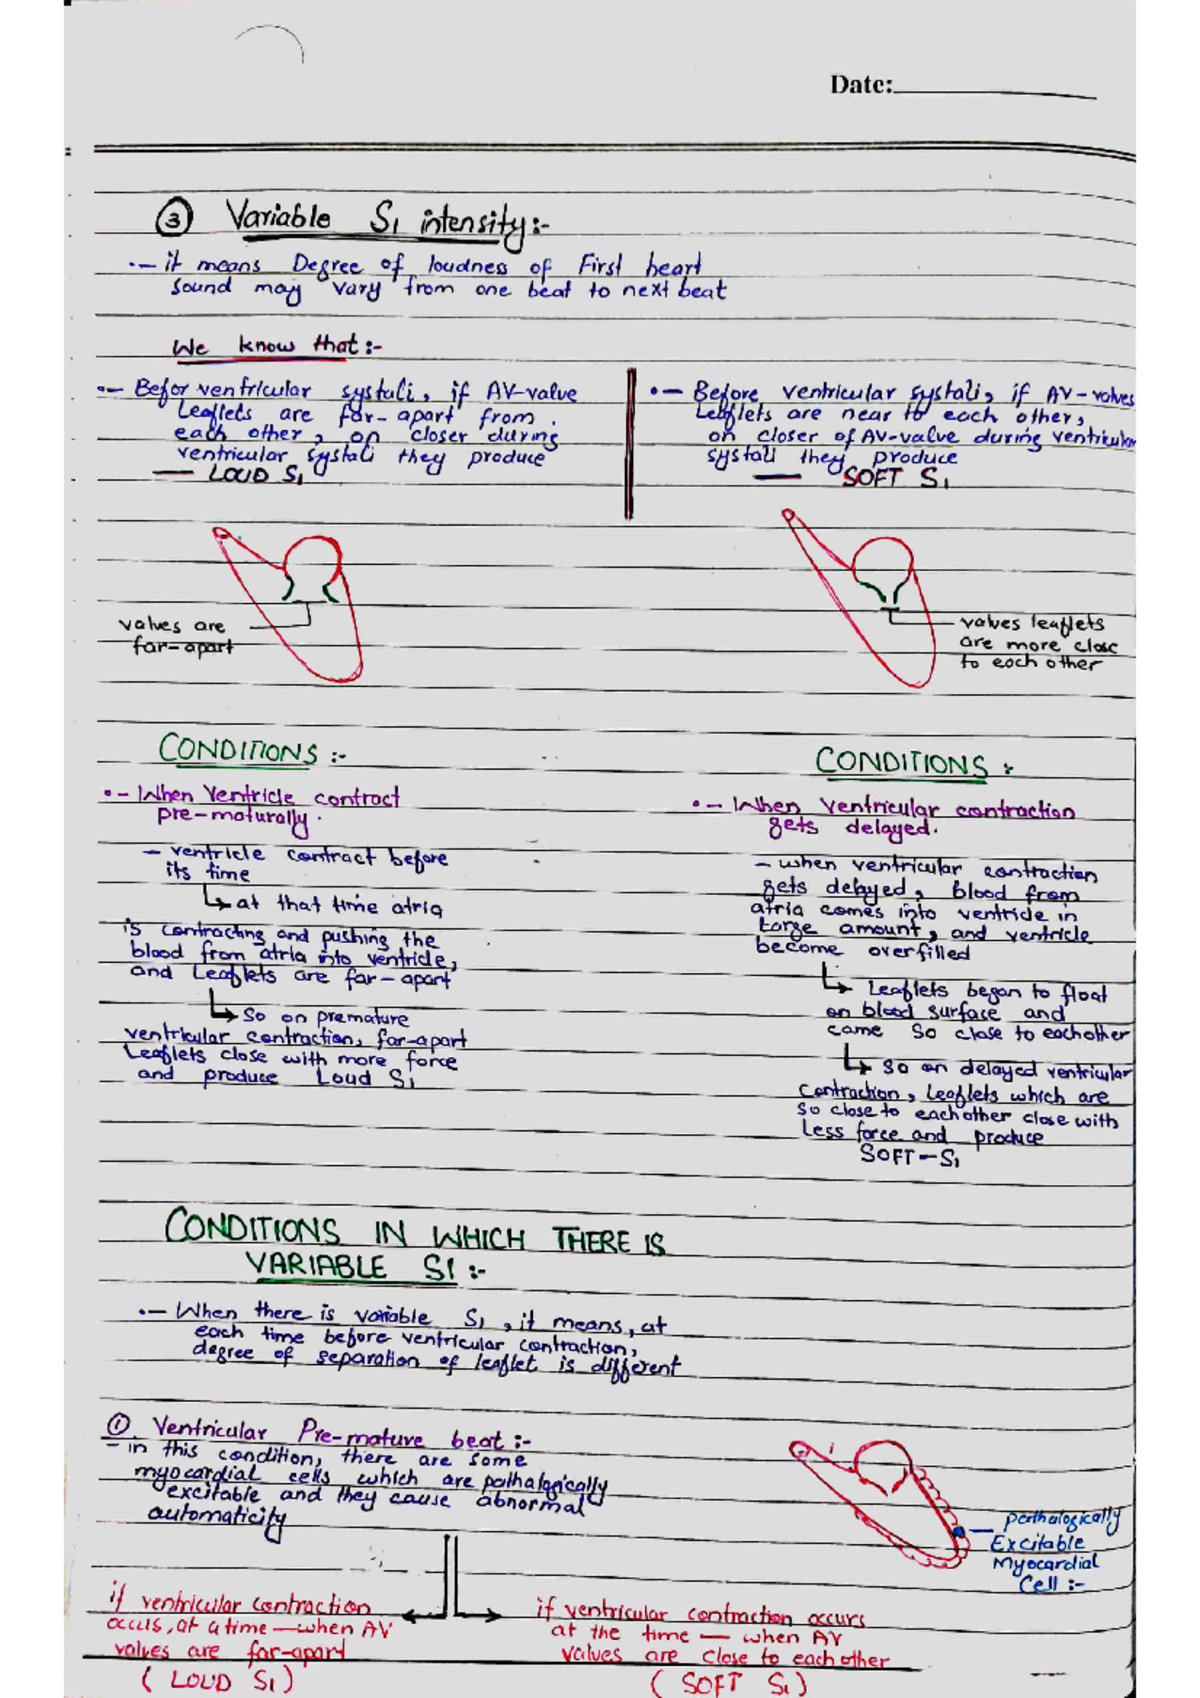 Date:
③ Variable S1 intensity:-
•— it means Degree of loudness of First heart
sound may vary from one beat to next beat
We know that:-
•— Befor ventricular systali, if AV-valve
Leaflets are far-apart from
each other, on closer during
ventricular systali they produce
— LOUD S1
•— Before ventricular systali, if AV-valves
Leaflets are near to each other,
on closer of AV-valve during ventricular
systali they produce
— SOFT S1
valves are
far-apart
valves leaflets
are more close
to each other
CONDITIONS :-
•- When Ventricle contract
pre-maturally.
- ventricle contract before
its time
↳ at that time atria
is contracting and pushing the
blood from atria into ventricle,
and Leaflets are far-apart
↳ so on premature
ventricular contraction, far-apart
Leaflets close with more force
and produce Loud S1
CONDITIONS :
•- When Ventricular contraction
gets delayed.
- when ventricular contraction
gets delayed, blood from
atria comes into ventricle in
large amount, and ventricle
become overfilled
↳ Leaflets began to float
on blood surface and
came so close to eachother
↳ so on delayed ventricular
contraction, leaflets which are
so close to eachother close with
Less force and produce
SOFT-S1
CONDITIONS IN WHICH THERE IS
VARIABLE S1 :-
•— When there is variable S1, it means, at
each time before ventricular contraction,
degree of separation of leaflet is different
① Ventricular Pre-mature beat :-
- in this condition, there are some
myocardial cells which are pathalogically
excitable and they cause abnormal
automaticity
pathalogically
Excitable
Myocardial
Cell :-
if ventricular contraction
occus, at a time — when AV
valves are far-apart
( LOUD S1 )
if ventricular contraction occurs
at the time — when AV
values are close to each other
( SOFT S1 )